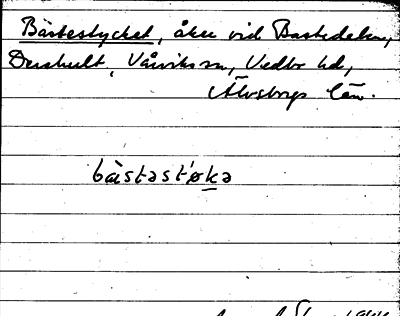 Bästestycket, åker vid Bastedalen,
Dershult, Vårviks sn, Vedbo hd,
Älvsborgs län.
bàstəst'økə